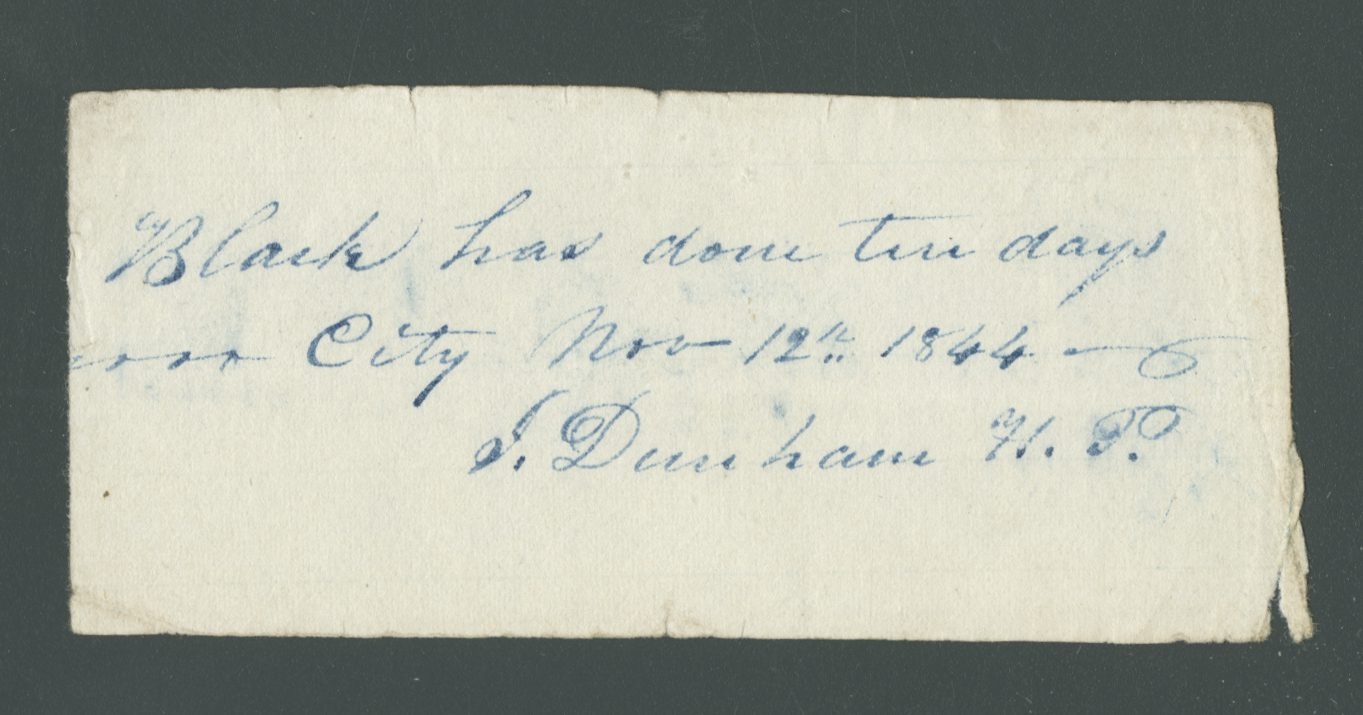 Black has done ten days
City Nov 12th. 1844
J. Dunham H. T.